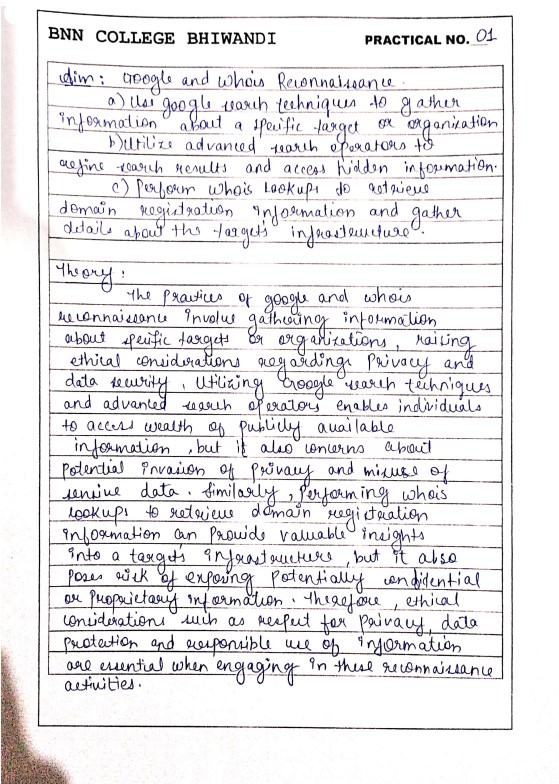 BNN COLLEGE BHIWANDI
PRACTICAL NO. 01
Aim: Google and Whois Reconnaissance.
a) Use google search techniques to gather
information about a specific target or organization
b) Utilize advanced search operators to
refine search results and access hidden information.
c) Perform whois Lookups to retrieve
domain registration information and gather
details about the targets infrastructure.
Theory:
The Practices of google and whois
reconnaissance involve gathering information
about specific targets or organizations, raising
ethical considerations regarding Privacy and
data security. Utilizing Google search techniques
and advanced search operators enables individuals
to access wealth of publicly available
information, but it also concerns about
potential invasion of privacy and misuse of
sensive data. Similarly, performing whois
lookups to retrieve domain registration
information can provide valuable insights
into a targets infrastructure, but it also
poses risk of exposing potentially confidential
or proprietary information. Therefore, ethical
considerations such as respect for privacy, data
protection and responsible use of information
are essential when engaging in these reconnaissance
activities.